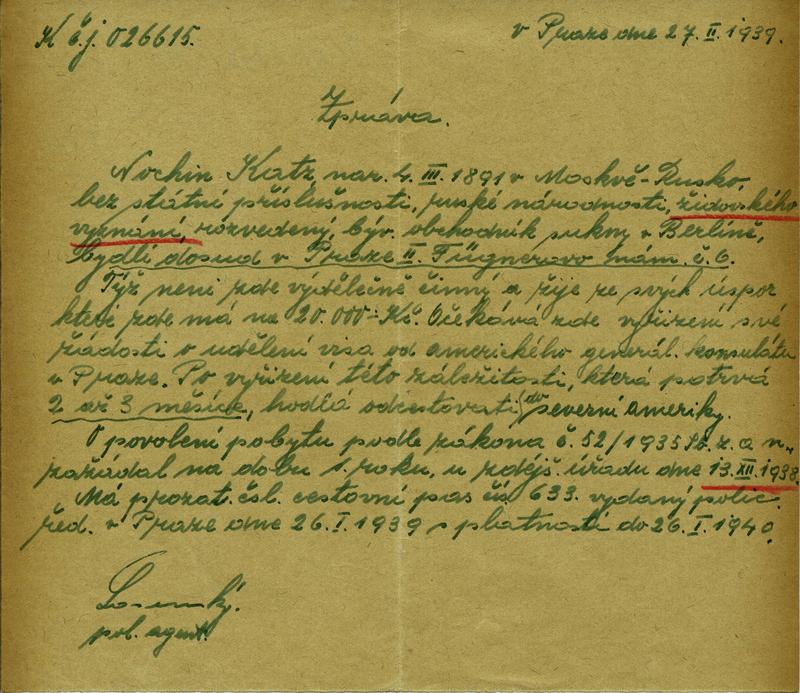 K č.j. 026615.
v Praze dne 27. II. 1939.
Zpráva.
Nochin Katz, nar. 4. III. 1891 v Moskvě-Rusko,
bez státní příslušnosti, ruské národnosti, židovského
vyznání, rozvedený, býv. obchodník sukny v Berlíně,
bydlí dosud v Praze II. Fügnerovo nám. č. 6.
Týž není zde výdělečně činný a žije ze svých úspor
které zde má na 20.000 Kč. Očekává zde vyřízení své
žádosti o udělení visa od amerického generál. konsulátu
v Praze. Po vyřízení této záležitosti, která potrvá
2 až 3 měsíce, hodlá odcestovati do severní ameriky.
O povolení pobytu podle zákona č. 52/1935 Sb. z. a n.,
zažádal na dobu 1. roku, u zdejš. úřadu dne 13. XII. 1938.
Má prozat. čsl. cestovní pas čís 633. vydaný polic.
řed. v Praze dne 26. I. 1939 s platností do 26. I. 1940.
pol. agent.